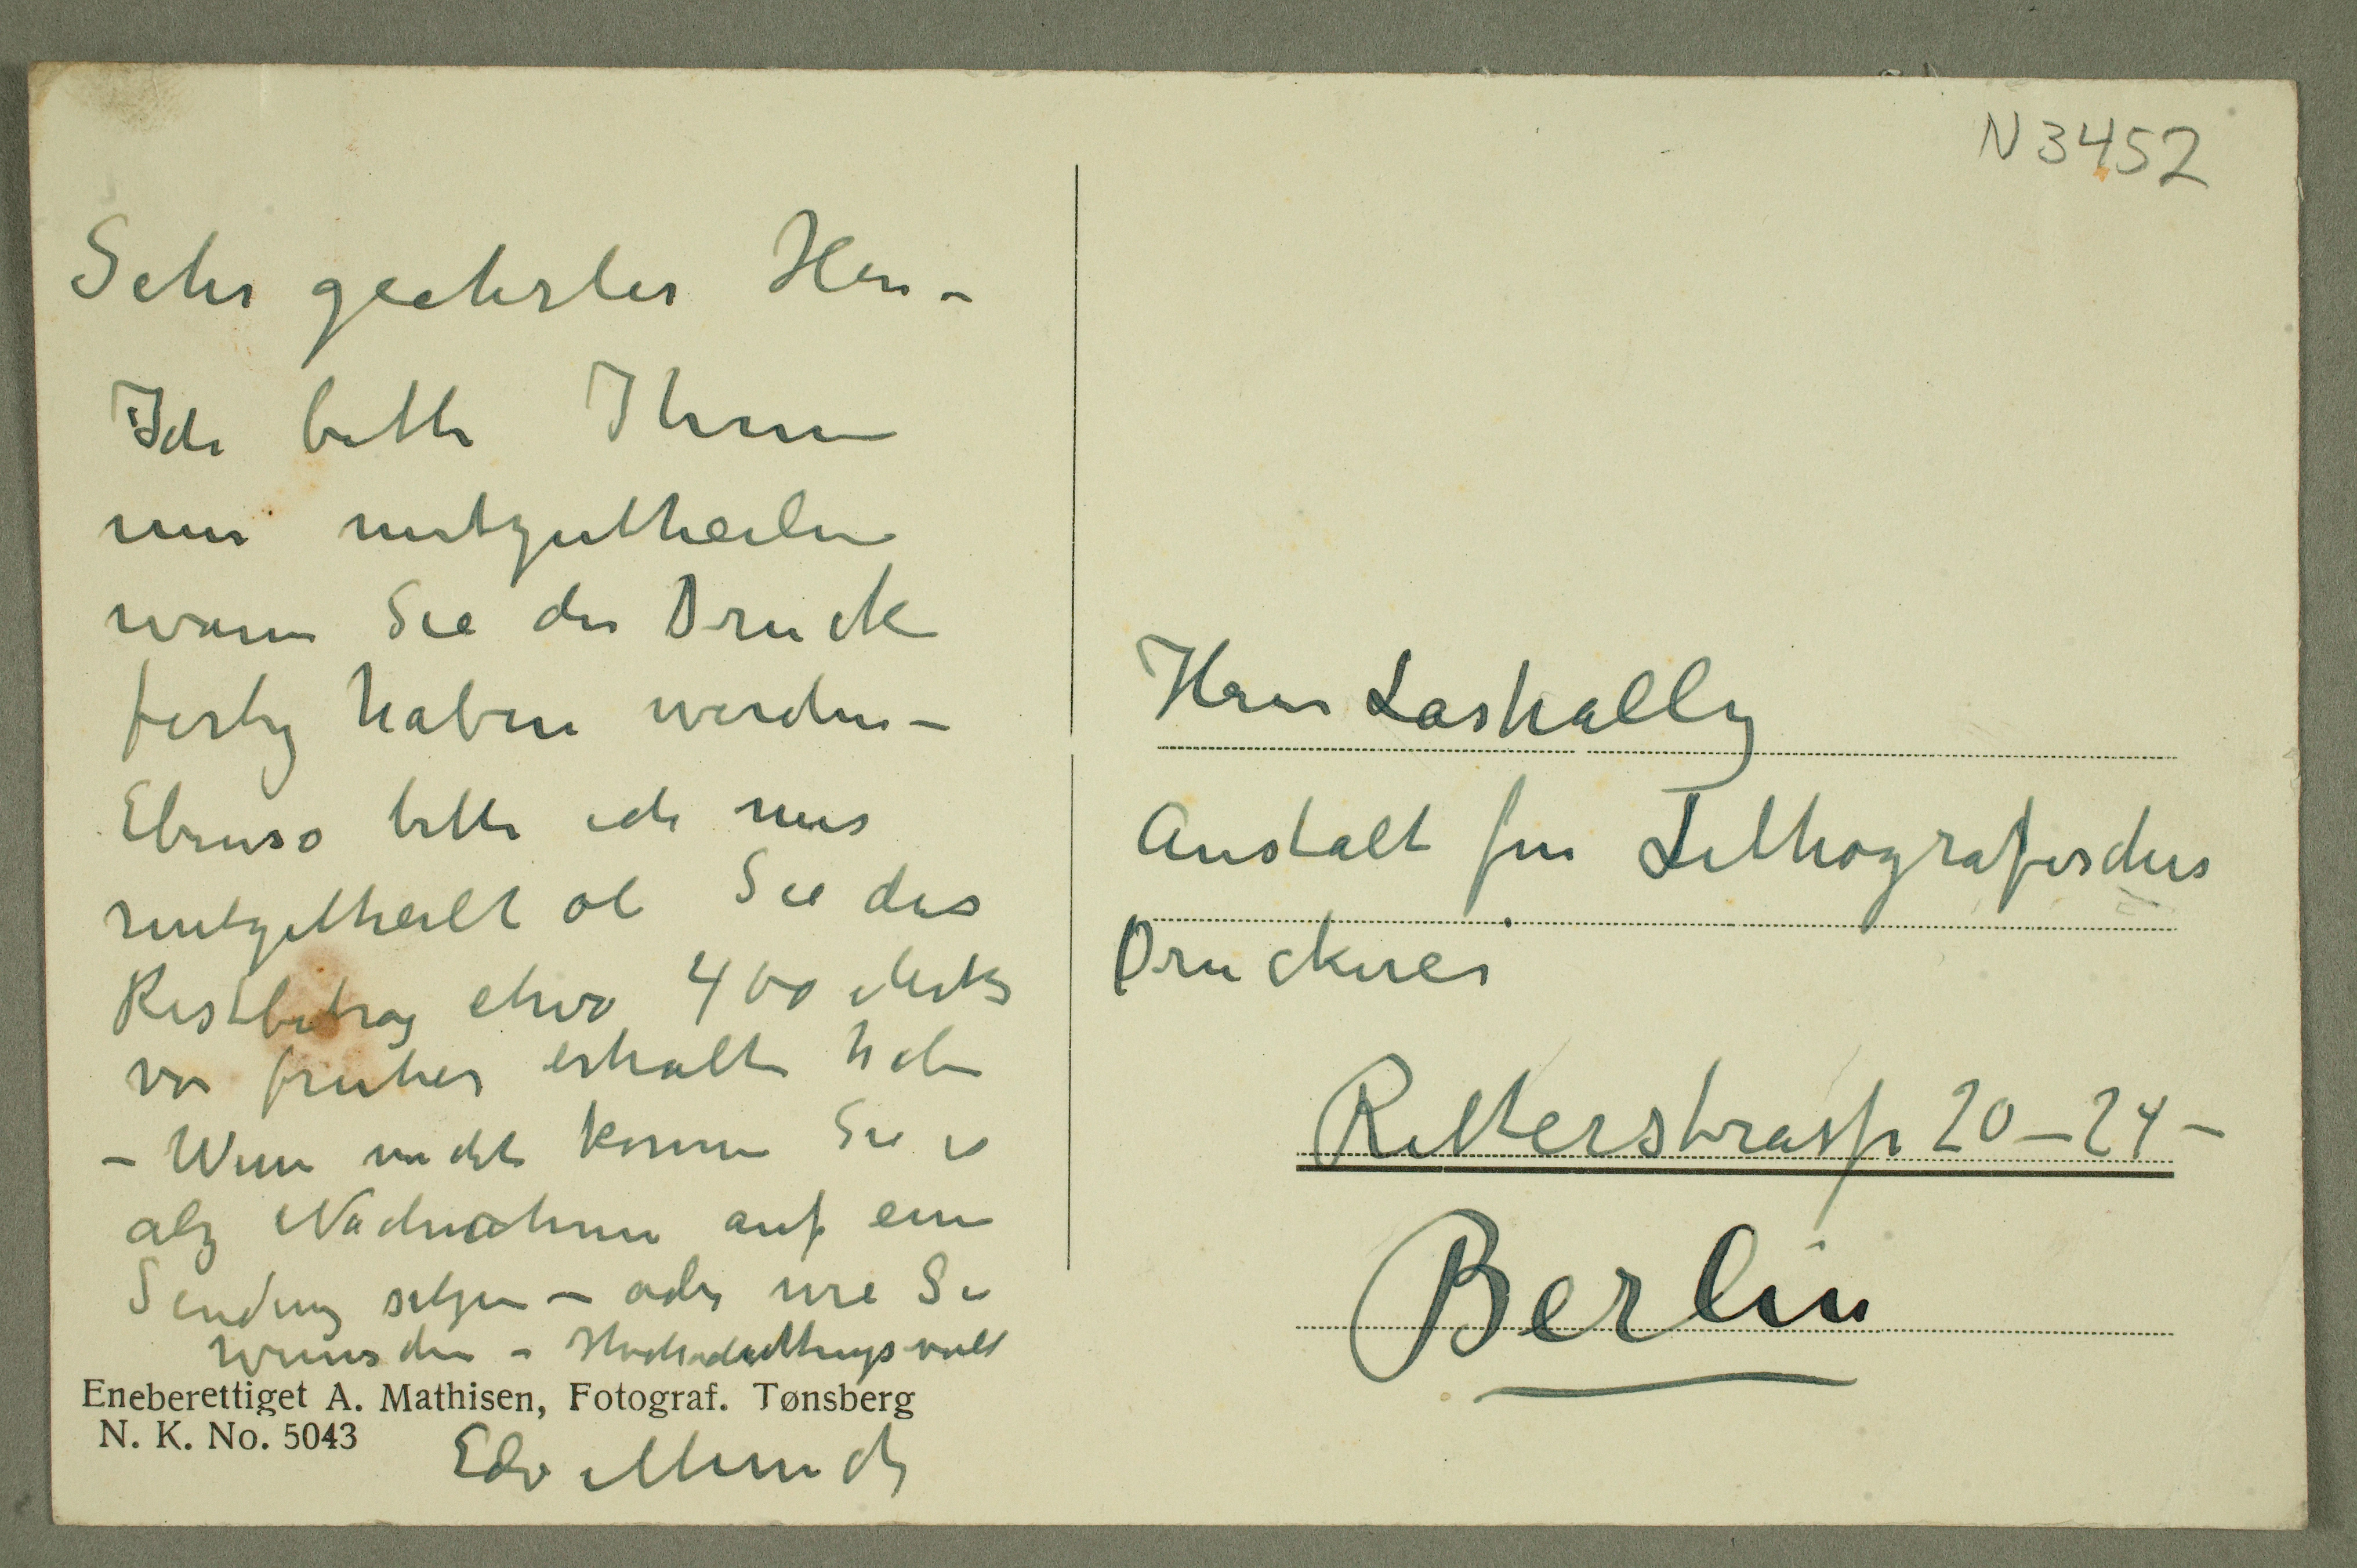 N 3452
Sehr geehrter Herr –
Ich bitte Ihnen
mir mitzutheilen
wann Sie den Druck
fertig haben werden –
Ebenso bitte ich mir
mitgetheilt ob Sie das
Restbetrag etwa 400 Mark
von früher erhalten haben
– Wenn nicht können Sie es
als Nachnahme auf eine
Sendung setzen – oder wie Sie
wünschen – Hochachtungsvoll
Eneberettiget A. Mathisen, Fotograf. Tønsberg
N. K. No. 5043
Edv Munch
Herr Laskally
Anstalt für Lithografischer
Druckerei
Ritterstrasse 20–24–
Berlin